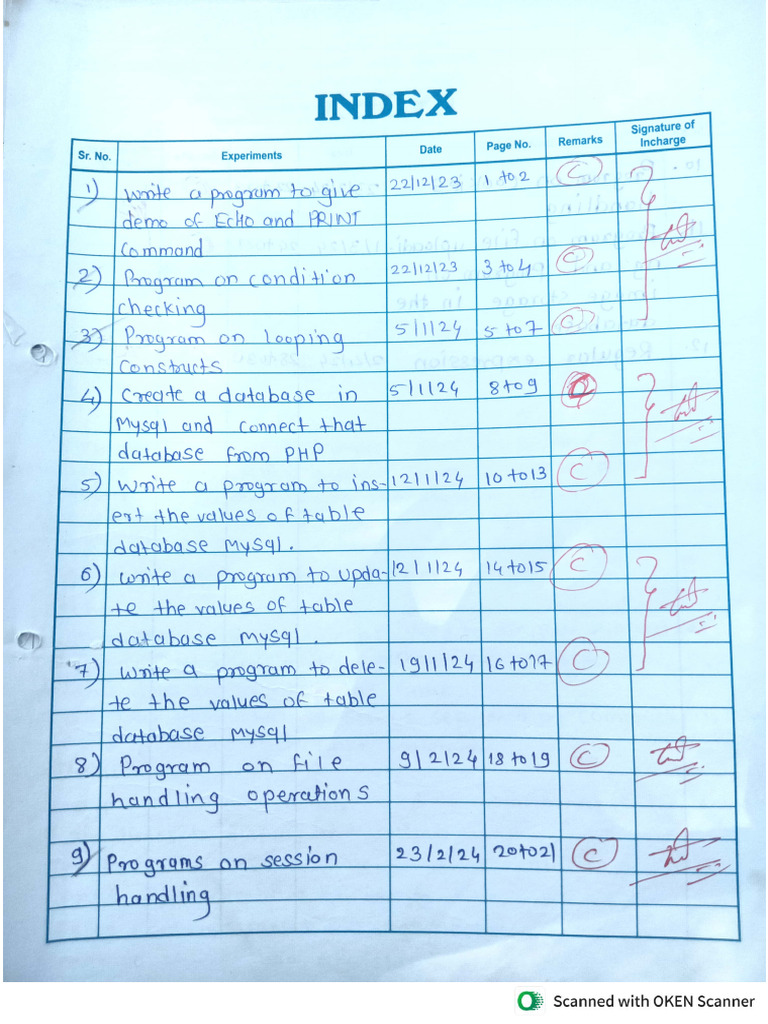 INDEX
Sr. No. Experiments Date Page No. Remarks Signature of Incharge
1) Write a program to give 22/12/23 1 to 2 C
demo of EcHo and PRINT
Command
2) Program on condition 22/12/23 3 to 4 C
checking
3) Program on looping 5/1/24 5 to 7 C
constructs
4) Create a database in 5/1/24 8 to 9
Mysql and connect that
database from PHP
5) Write a program to ins- 12/1/24 10 to 13 C
ert the values of table
database Mysql.
6) Write a program to upda- 12/1/24 14 to 15 C
te the values of table
database Mysql.
7) Write a program to dele- 19/1/24 16 to 17 C
te the values of table
database Mysql
8) Program on file 9/2/24 18 to 19 C
handling operations
9) Programs on session 23/2/24 20 to 21 C
handling
Scanned with OKEN Scanner